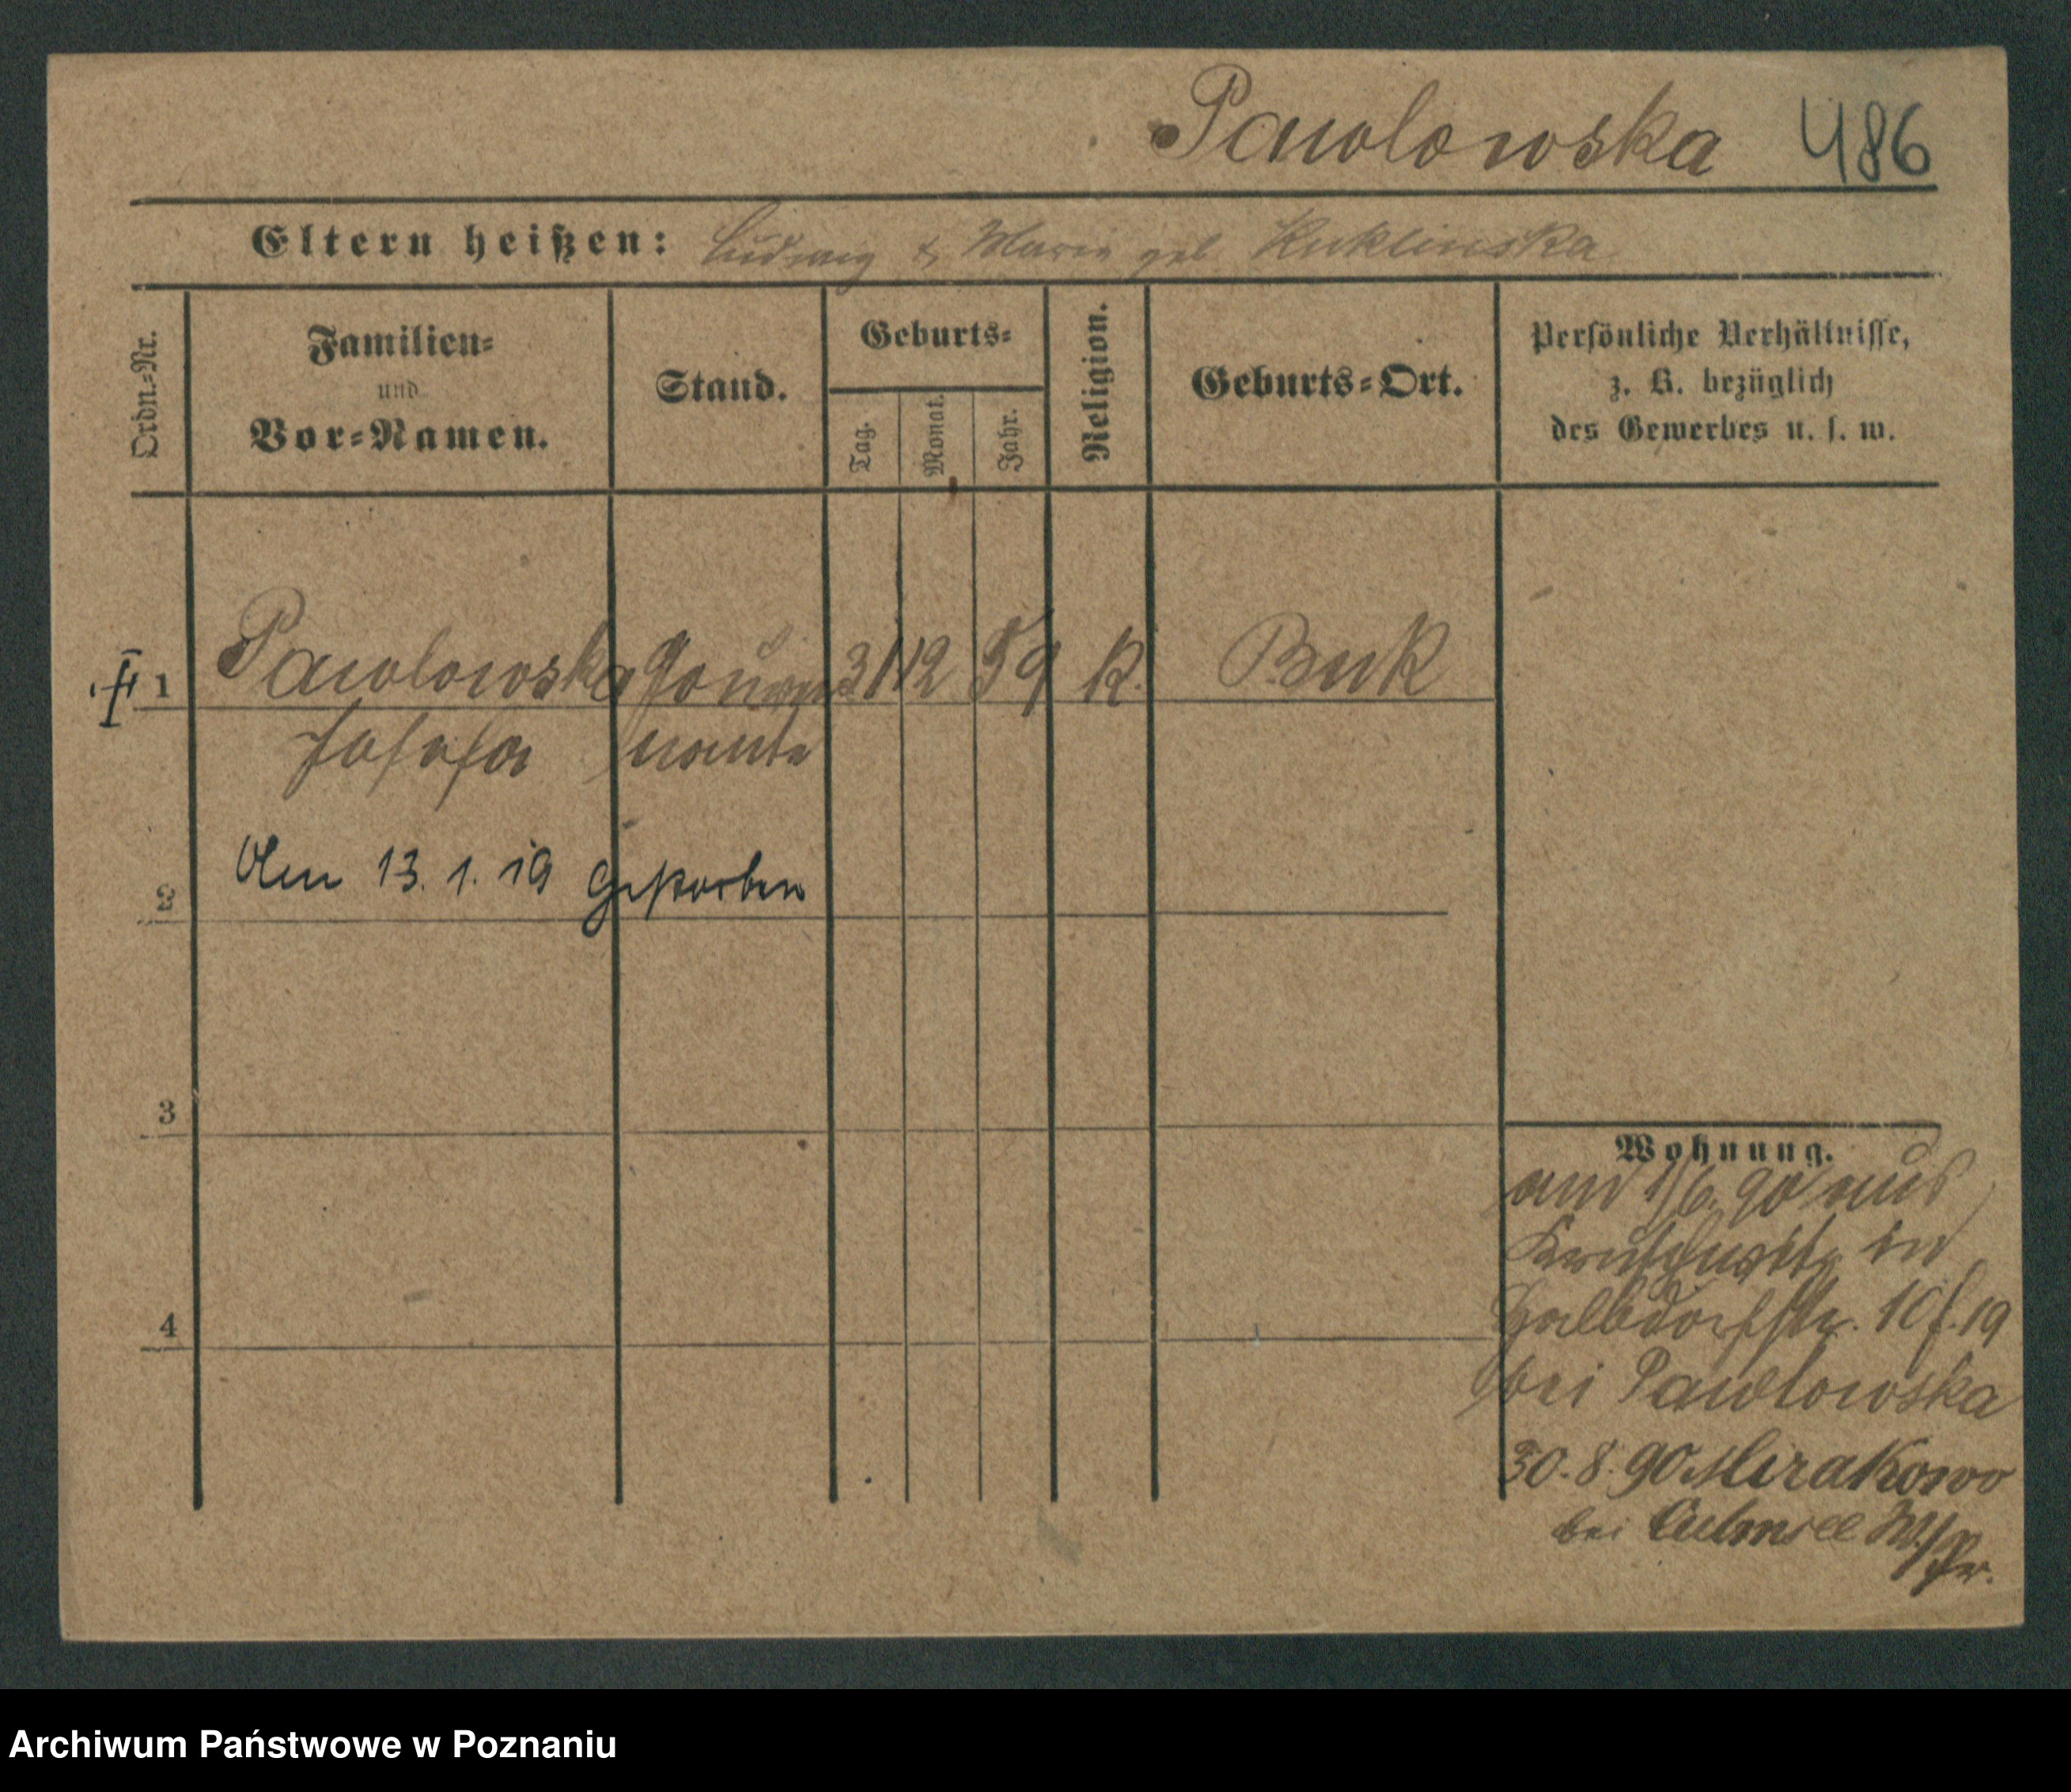 Pawlowska 486
Eltern heißen: Ludwig & Marie geb. Kuklinska
Ordn.=Nr.
Familien=
und
Vor=Namen.
Stand.
Geburts=
Tag.
Monat.
Jahr.
Religion.
Geburts=Ort.
Persönliche Verhältnisse,
z. B. bezüglich
des Gewerbes u. s. w.
1 Pawlowska Gouver 31 12 59 K. Buk
Josefa nante
2 Am 13. 1. 19 gestorben
3
4
Wohnung.
am 1/6. 90 aus
Kruschwitz in
Halbdorfstr. 10 f. 19
bei Pawlowska
30. 8. 90 Mirakowo
bei Culmsee W/Pr.
Archiwum Państwowe w Poznaniu